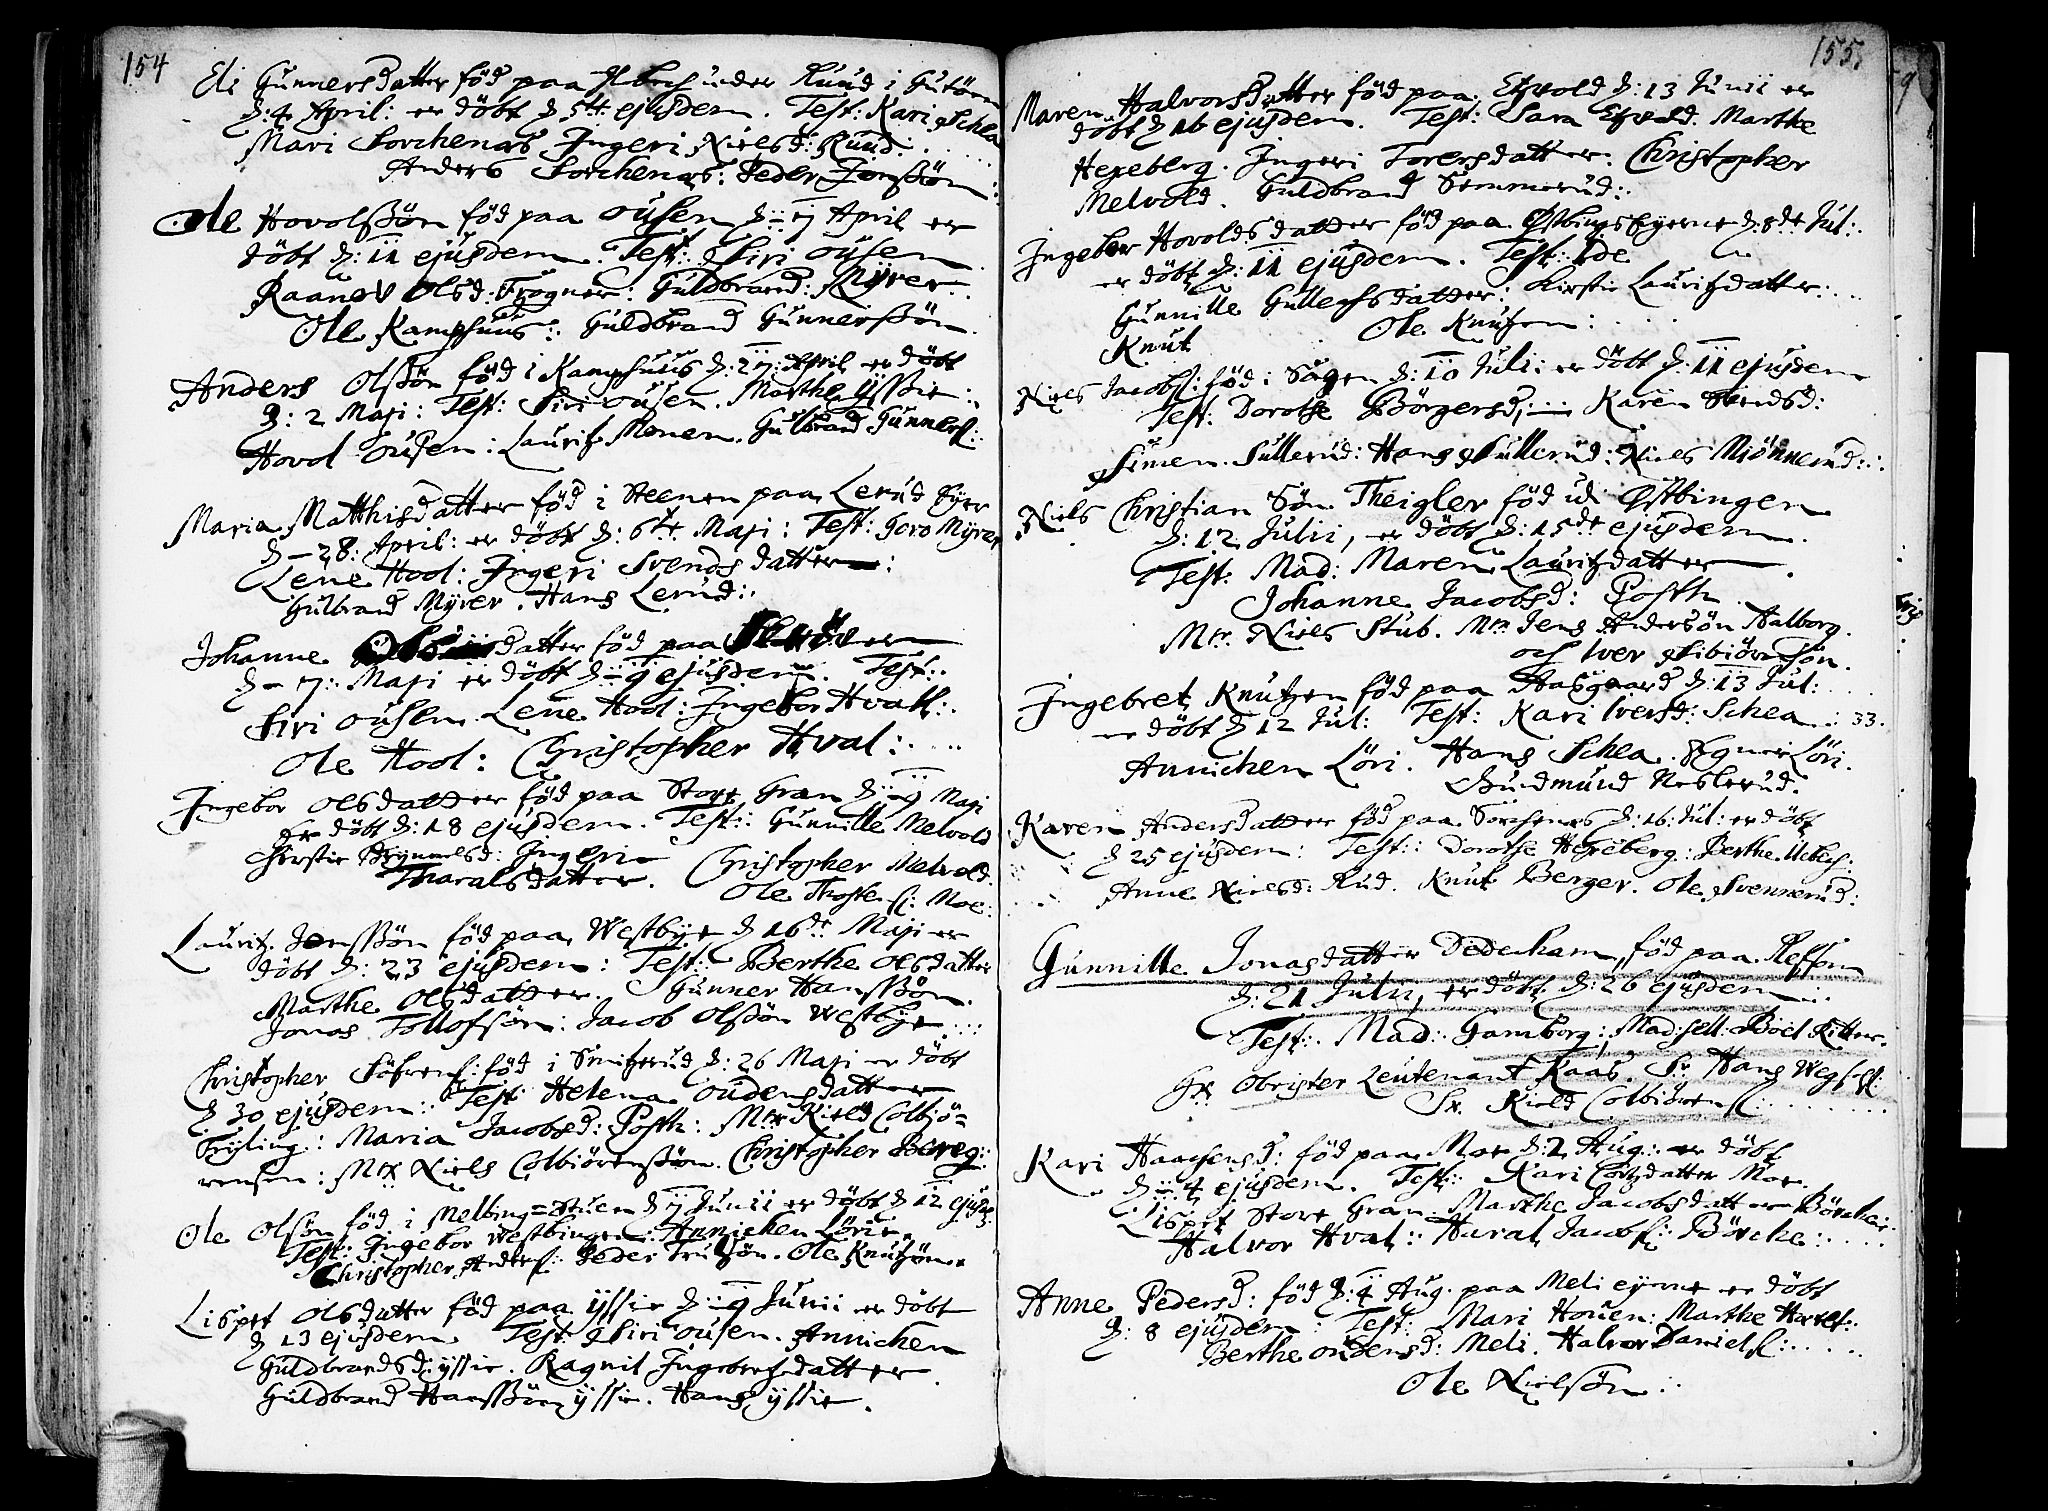 154
Eli Gunnersdatter föd paa under Ruud i
d: 4 April: er döbt d 5te ejusdem. Test: Kari Schea
Mari Sorchenæs Ingeri Nielsd: Ruud:
Anders Sorchenæs: Peder Jonssön
Ole Hovolssön föd paa Ousen d: 7 April er
döbt d: 11 ejusdem. Test: Siri Ousen
Raanov Olsd: Frogner: Guldbrand: Myrer:
Ole Kamphuus: Guldbrand Gunnerssön.
Anders Olssön föd i Kamphuus d: 27: April er döbt
d: 2 Maji: Test: Siri Ousen. Marthe Yssie:
Hovol Ousen: Lauritz Monen. Gulbrand Gunners:
Maria Matthisdatter föd i Steenen paa Lerud Eyer
d 28: April: er döbt d: 6te Maji: Test: Goro Myrer
Lene Hool: Ingeri Svends datter:
Gulbrand Myrer. Hans Lerud:
Johanne datter föd paa er
d 7: Maji er döbt d 9 ejusdem. Test:
Siri Ousen Lene Hool: Ingebor Hvall:
Ole Hool: Christopher Hval:
Ingebor Olsdatter föd paa Store Gran d: 9 Maji
er döbt d: 18 ejusdem. Test: Gunnille Melvold
Kirstie Brynnelsd: Ingeri
Tharalsdatter. Christopher Melvold.
Ole Thostens: Moe:
Lauritz Jonssön föd paa Westbye d 16de Maji er
döbt d: 23 ejusdem: Test: Berthe Olsdatter
Marthe Olsdatter. Gunner Hanssön.
Jonas Tollofsön: Jacob Olssön Westbye
Christopher Söfrens: föd i Smitzrud d: 26 Maji er döbt
d 30 ejusdem: Test Helena Oudensdatter
Tryling: Maria Jacobsd: Posth: Mr Kield Colbjö-
rensen: Mr Niels Colbiörenssön. Christopher
Ole Olsön föd i Melbing=Stuen d 9 Junii er döbt d 12 ejusd:
Test: Ingebor Westbingen: Annichen Löri.
Christopher Anders: Peder Trulsön. Ole Knutsön.
Lispet Olsdatter föd paa Yssie d: 9 Junii er döbt
d 13 ejusdem. Test: Siri Ousen. Annichen
Guldbrandsd: Yssie. Ragnil Ingebretsdatter
Guldbrand Hanssön Yssie. Hans Yssie.
155.
Maren Halvorsdatter föd paa Etzvold d: 13 Junii er
döbt d 16 ejusdem. Test: Sara Etzvold. Marthe
Hexeberg. Ingeri Toresdatter: Christopher
Melvold. Guldbrand Semmerud:
Ingebor Hovolds datter föd paa ØstbingsEyerne d: 8de Jul:
er döbt d: 11 ejusdem. Test: Ide
Gunnille Gullechsdatter: Kirstie Lauritzdatter:
Knut Ole Knutzen:
Niels Jacobs: föd i Sagen d: 10 Julii er döbt d: 11 ejusdem
Test: Dorothe Börgersd: Karen Svendsd:
Simen Sullerud: Hans Sullerud: Niels Mjönnerud:
Niels Christian Sön Theigler föd ud Østbingen
d: 12 Julii, er döbt d: 15de ejusdem.
Test: Mad: Maren Lauritzdatter
Johanne Jacobsd: Posth
Mr. Niels Stub. Mr Jens Andersön Halborg.
och Iver Sibiörnsön.
Ingebret Knutzen föd paa Aasgaard d: 13 Jul:
er döbt d 12 Jul: Test: Kari Iversd: Schea: 33.
Annichen Löri. Hans Schea. Löri.
Gundmund Neslerud.
Karen Andersdatter föd paa Sorchenæs d: 16: Jul: er döbt
d 25 ejusdem: Test: Dorothe Hexeberg: Berthe
Anne Nielsd: Rud. Knut Berger. Ole Svennerud:
Gunnille Jonasdatter Dedecham, föd paa
d: 21 Julii, er döbt d: 26 ejusdem
Test: Mad: Gamborg: Mad:sell: Boel Ritter.
Hr Obrister Leutenant Kaas. Sr Hans
Sr. Kield Colbiörens:
Kari Haachensd: föd paa Moe d: 2 Aug: er döbt
d: 4 ejusdem. Test: Kari datter Moe.
Lispet Store Gran. Marthe Jacobsdatter Börcke:
Halvor Hval: Haral Jacobs: Börcke:
Anne Pedersd: föd d: 4 Aug. paa Meli eyerne er döbt
d: 8 ejusdem: Test: Mari Houen: Marthe
Berthe Oudensd: Meli. Halvor Daniels:
Ole Nielsön: